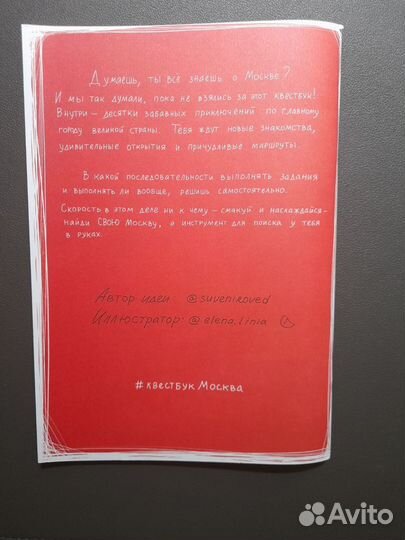 Думаешь, ты всё знаешь о Москве?
И мы так думали, пока не взялись за этот квестбук!
Внутри – десятки забавных приключений по главному
городу великой страны. Тебя ждут новые знакомства,
удивительные открытия и причудливые маршруты.
В какой последовательности выполнять задания
и выполнять ли вообще, решишь самостоятельно.
Скорость в этом деле ни к чему – смакуй и наслаждайся-
найди СВОЮ Москву, а инструмент для поиска у тебя
в руках.
Автор идеи @suveniroved
Иллюстратор: @elena.linia
#квестбукМосква
Avito